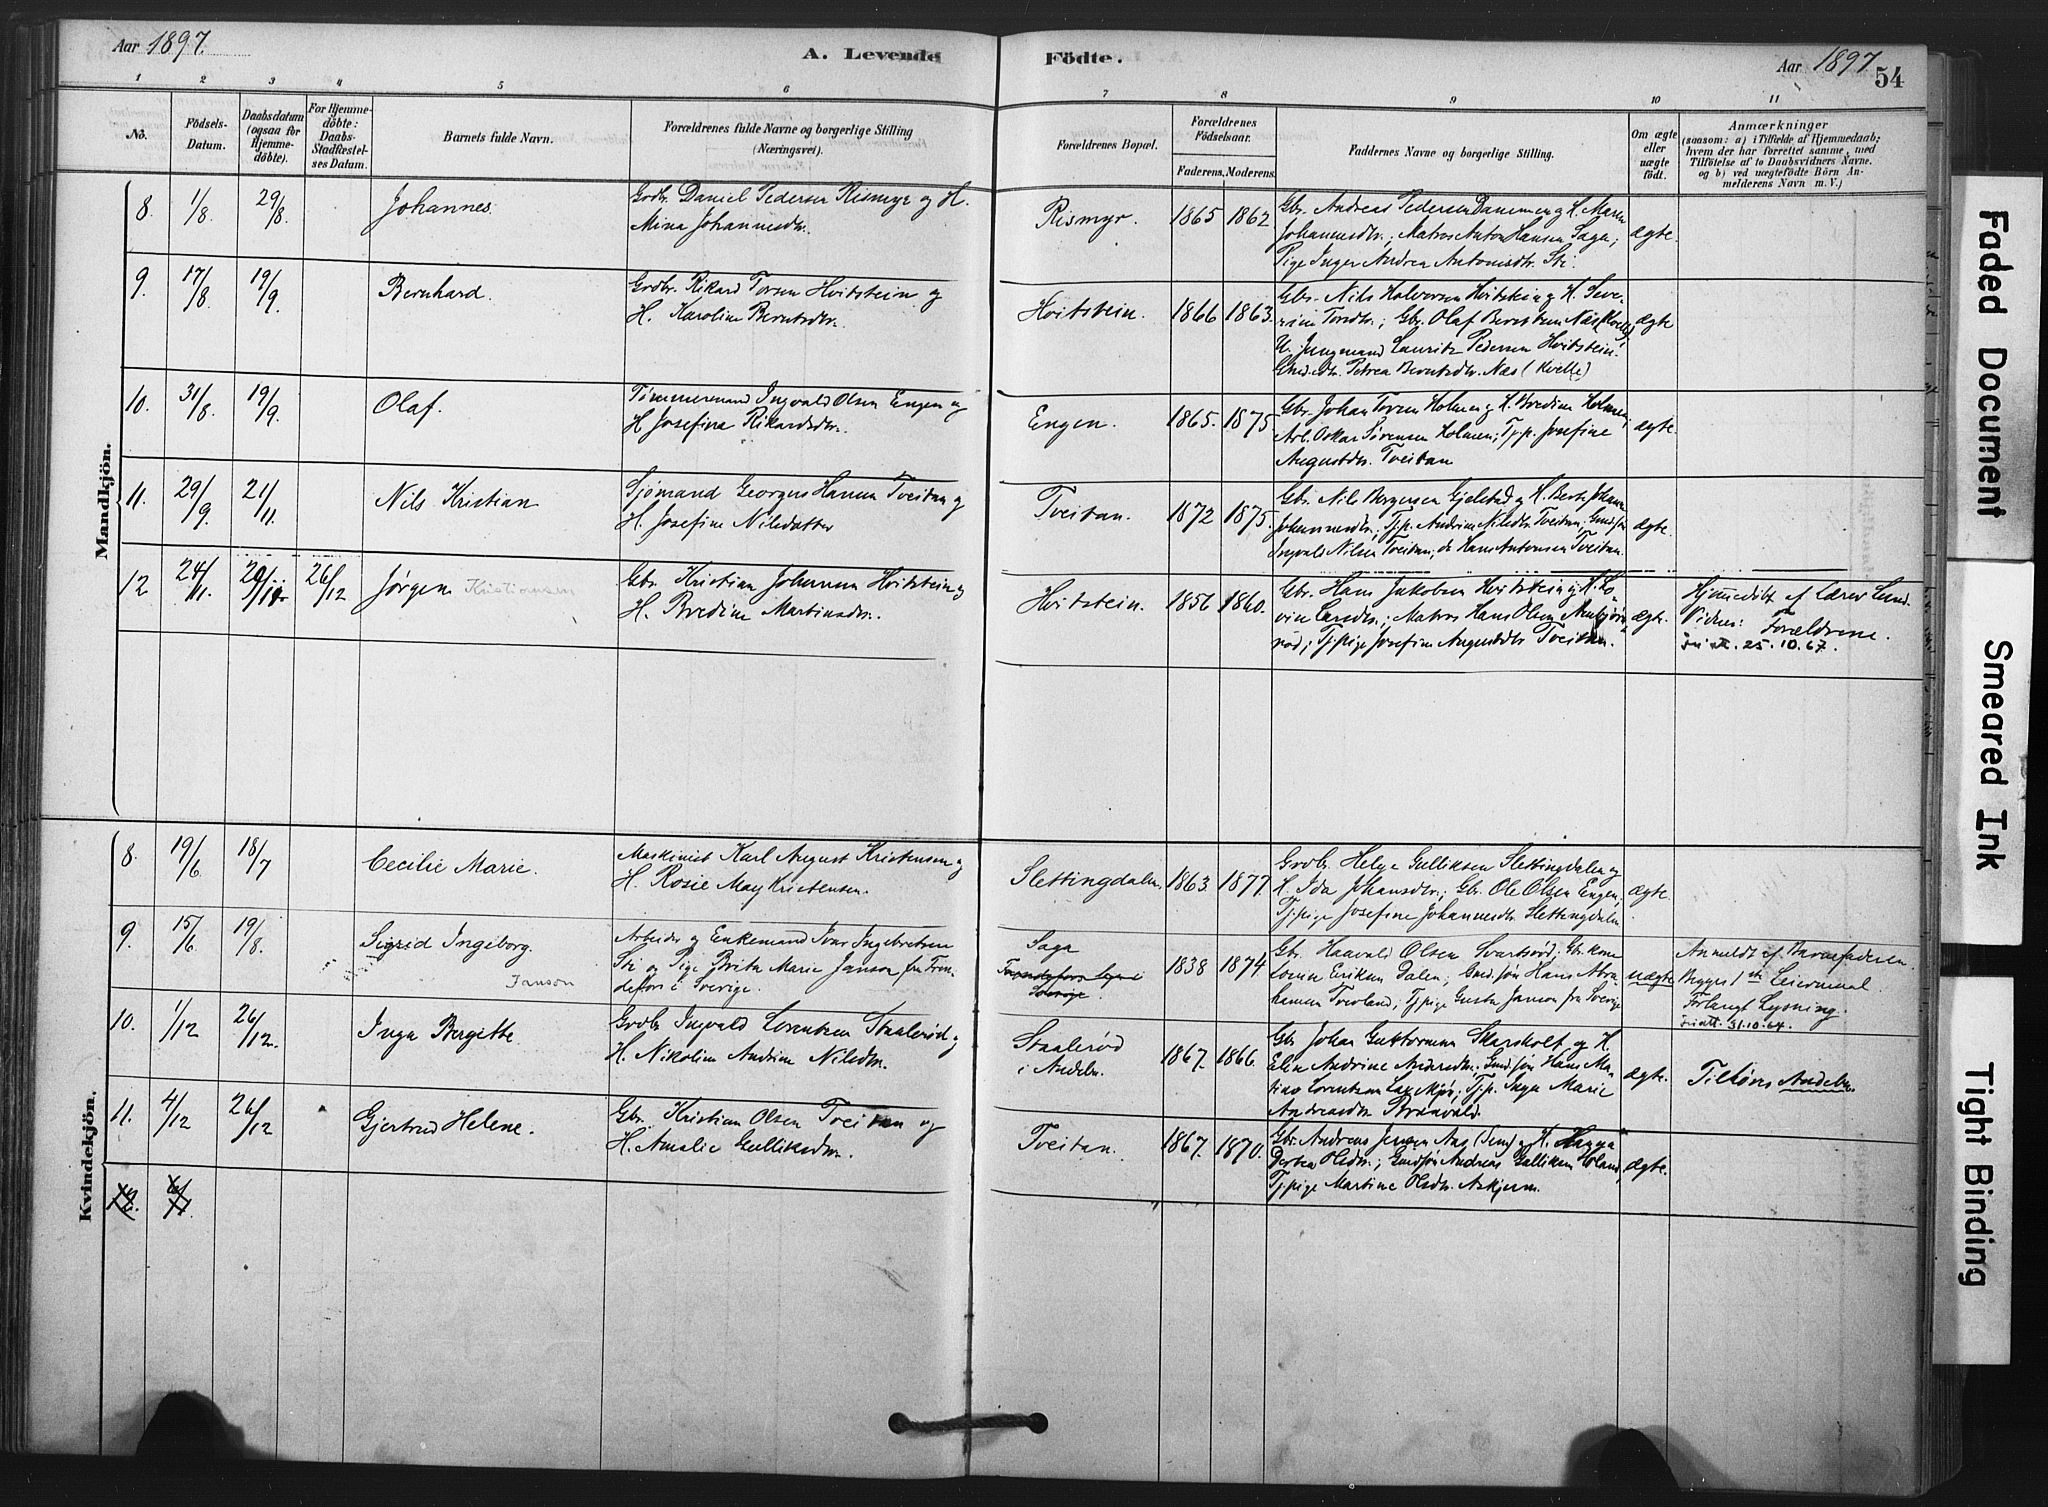 Aar 1897.
A. Levende Födte.
Aar 1897
54
1 2 3 4 5 6 7 8 9 10 11
No.
Födsels-Datum.
Daabsdatum (ogsaa for Hjemme-döbte).
For Hjemme-döbte: Daabs-Stadfæstel-ses Datum.
Barnets fulde Navn.
Forældrenes fulde Navne og borgerlige Stilling
(Næringsvei).
Forældrenes Bopæl.
Forældrenes Födselsaar.
Faderens. Moderens.
Faddernes Navne og borgerlige Stilling.
Om ægte eller uægte födt.
Anmærkninger
(saasom: a) i Tilfælde af Hjemmedaab;
hvem der har forrettet samme, med
Tilföielse af to Daabsvidners Navne.
og b) ved uægtefödte Börn An-
melderens Navn m. V.)
Mandkjön.
8. 1/8 29/8. Johannes.
Grdbr. Daniel Pedersen Rismyr og H.
Mina Johannesdtr.
Rismyr. 1865 1862
Gbr. Andreas Pedersen Dammen og H. Maren
Johannesdtr.; Matros Anton Hansen Saga;
Pige Inger Andrea Antonisdtr. Sti.
ægte.
9. 17/8 19/9. Bernhard.
Grdbr. Rikard Torsen Hvitstein og
H. Karoline Berntsdtr.
Hvitstein. 1866 1863.
Gbr. Nils Halvorsen Hvitstein og H. Seve-
rine Torsdtr.; Gbr. Olaf Berntsen Næs (Kvelle)
U. Jungmand Lauritz Pedersen Hvitstein.
Petrea Berntsdtr. Næs (Kvelle)
ægte
10. 31/8. 19/9. Olaf.
Tømmermand Ingvald Olsen Engen og
H. Josefina Rikardsdtr.
Engen. 1865. 1875.
Gbr. Johan Torsen Holmen og H. Bredine Holmen;
Arb. Oskar Sørensen Holmen; Tj.p. Josefine
Augustdtr. Tveitan
ægte.
11. 29/9. 21/11. Nils Kristian
Sjømand Georgus Hansen Tveitan og
H. Josefine Nilsdatter
Tveitan. 1872 1875.
Gbr. Nils Bergersen Gjelstad og H. Berte Johanne
Johannesdtr.; Tj.p. Andrine Nilsdtr. Tveitan; Grdsøn
Ingvald Nilsen Tveitan; do Hans Antonsen Tveitan.
ægte.
12 24/11. 26/12 Jørgen Kristiansen
Gbr. Kristian Johannsen Hvitstein og
H. Bredine Martinsdtr.
Hvitstein. 1856 1860.
Gbr. Hans Jakobsen Hvitstein og H. Lo-
vise Larsdtr.; Matros Hans Olsen
rød; Tj.pige Josefine Augustdtr. Tveitan.
ægte.
Hjemmedøbt af Lærer Lund.
Vidner: Forældrene.
25.10.67.
Kvindekjön.
8. 19/6 18/7 Cecilie Marie.
Maskinist Karl August Kristensen og
H. Rosie May Kristensen.
Slettingdalen. 1863. 1877.
Grdbr. Helge Gulliksen Slettingdalen og
H. Ida Johansdtr.; Gbr. Ole Olsen Engen;
Tj.pige Josefine Johannesdtr. Slettingdalen
ægte.
9. 15/6 19/8. Sigrid Ingeborg.
Janson
Arbeider og Enkemand Ivar Ingebretsen
Sti og Pige Brita Marie Janson fra
i Sverige.
Saga
1838 1874.
Gbr. Haavald Olsen Svartsrød; Gbr. kone
Erikson Dalen; Grdsøn Hans Abra-
hamsen Tveitand; Tj.pige Gusta Janson fra Sverige
uægte
Anmeldt af Barnefaderen.
Begges 1ste Leiermaal.
Forlangt Lysning.
31.10.64.
10. 1/12 26/12. Inga Bergitte.
Grdbr Ingvald Lorentsen Staalerød og
H. Nikoline Andrine Nilsdtr.
Staalerød
i Andebu.
1867. 1866.
Gbr. Johan Guttormsen Skarsholt og H.
Elen Andrine Andersdtr. Grdsøn Hans Ma-
tias Lorentsen; Tj.p. Inga Marie
Andreasdtr. Brunvald.
ægte.
Tilhører Andebu.
11. 4/12 26/12 Gjertrud Helene.
Gbr. Kristian Olsen Tveitan og
H. Amalie Gulliksdtr.
Tveitan. 1867. 1870.
Gbr. Andreas Jensen Aas og H.
Olsdtr.; Grdsøn Andreas Gulliksen
Tj.pige Martine Olsdtr. Askjem.
ægte.
Faded Document
Smeared Ink
Tight Binding